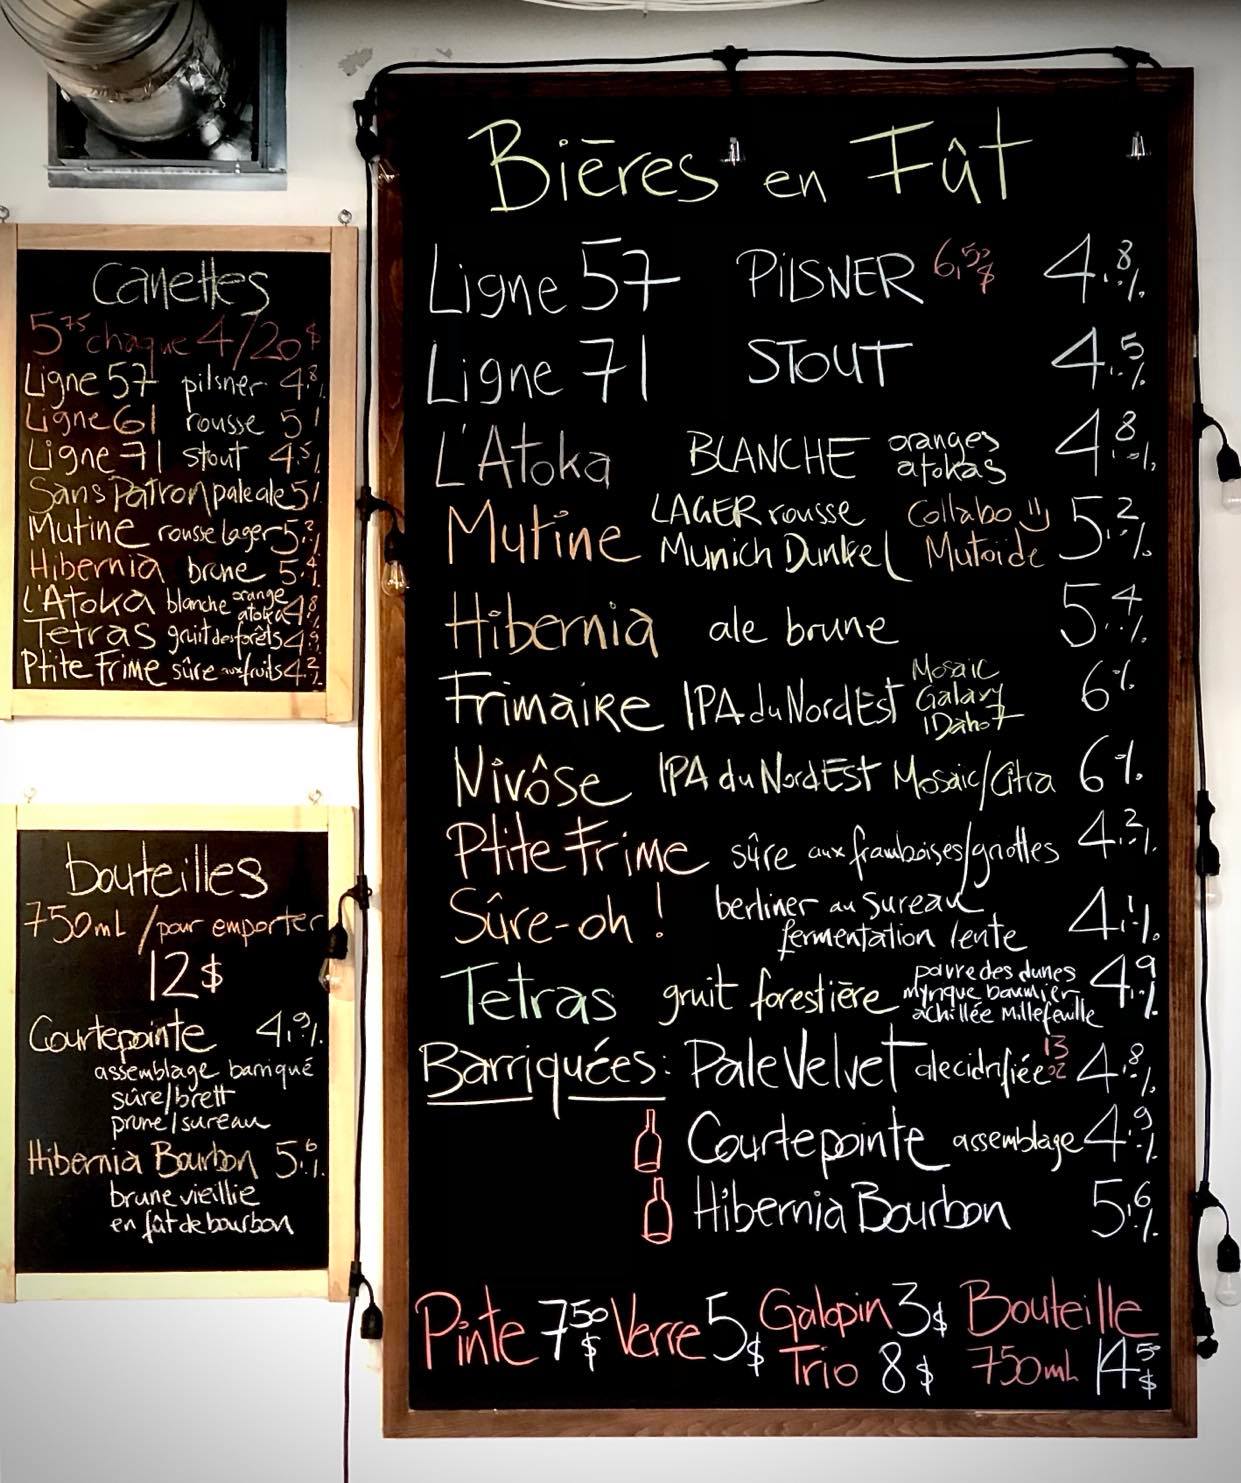 Bières en Fût
Ligne 57 PILSNER 6,50$ 4.8%
Ligne 71 STOUT 4.5%
L'Atoka BLANCHE oranges atokas 4.8%
Mutine LAGER rousse Munich Dunkel Collabo Mutoïde 5.2%
Hibernia ale brune 5.4%
Frimaire IPA du Nord Est Mosaic Galaxy IDaho7 6%
Nivôse IPA du Nord Est Mosaic/Citra 6%
Ptite Frime sûre aux framboises/griottes 4.2%
Sûre-oh! berliner au sureau fermentation lente 4.1%
Tetras gruit forestière poivre des dunes myrique baumier achillée Millefeuille 4.9%
Barriquées: Pale Velvet ale cidrifiée 13 oz 4.8%
Courtepointe assemblage 4.9%
Hibernia Bourbon 5.6%
Pinte 7.50$ Verre 5$ Galopin 3$ Trio 8$ Bouteille 750mL 14.50$
Canettes
5.75 chaque 4/20$
Ligne 57 pilsner 4.8%
Ligne 61 rousse 5%
Ligne 71 stout 4.5%
Sans Patron pale ale 5%
Mutine rousse lager 5.2%
Hibernia brune 5.4%
L'Atoka blanche orange atoka 4.8%
Tetras gruit des forêts 4.9%
Ptite Frime sûre aux fruits 4.2%
bouteilles
750mL / pour emporter
12$
Courtepointe 4.9%
assemblage barriqué
sûre/brett
prune/sureau
Hibernia Bourbon 5.6%
brune vieillie
en fût de bourbon